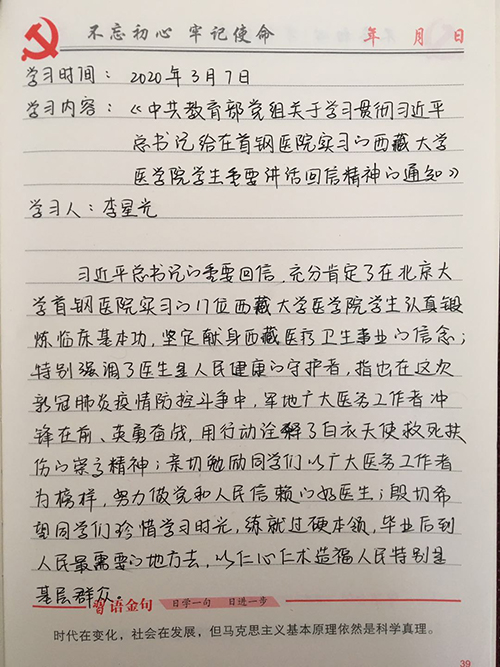 不忘初心 牢记使命
年 月 日
学习时间：2020年3月7日
学习内容：《中共教育部党组关于学习贯彻习近平
总书记给在首钢医院实习的西藏大学
医学院学生重要讲话回信精神的通知》
学习人：李星光
习近平总书记的重要回信，充分肯定了在北京大
学首钢医院实习的17位西藏大学医学院学生认真锻
炼临床基本功，坚定献身西藏医疗卫生事业的信念；
特别强调了医生是人民健康的守护者，指出在这次
新冠肺炎疫情防控斗争中，军地广大医务工作者冲
锋在前、英勇奋战，用行动诠释了白衣天使救死扶
伤的崇高精神；亲切勉励同学们以广大医务工作者
为榜样，努力做党和人民信赖的好医生；殷切希
望同学们珍惜学习时光，练就过硬本领，毕业后到
人民最需要的地方去，以仁心仁术造福人民特别是
基层群众。
习语金句 日学一句 日进一步
时代在变化，社会在发展，但马克思主义基本原理依然是科学真理。
39